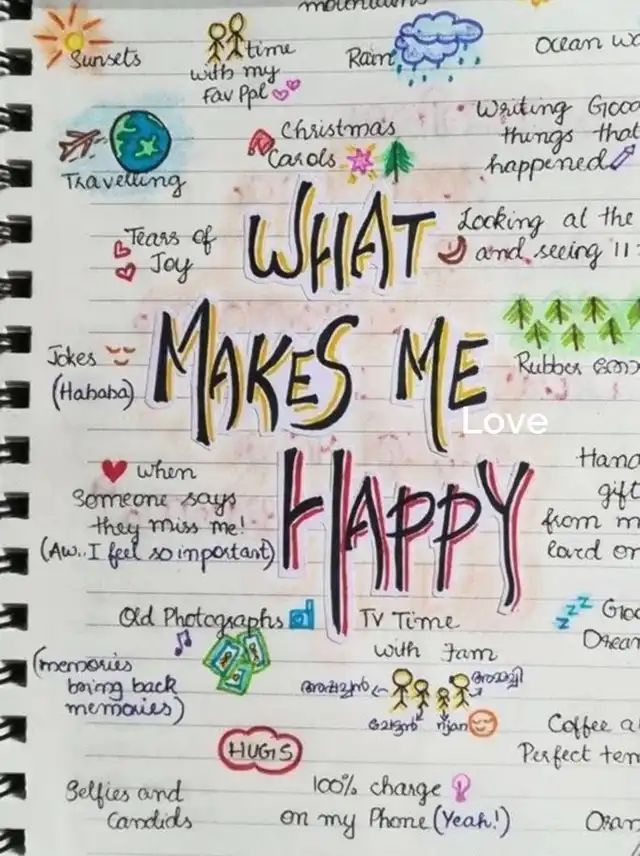 mountains
Sunsets
time
with my
Fav Ppl
Rain
Ocean
Travelling
Christmas
Carols
Writing Good
things that
happened
Tears of
Joy
WHAT
Looking at the
and seeing 11:
Jokes
(Hahaha)
MAKES ME
Rubber
Love
when
Someone says
they miss me!
(Aw.. I feel so important)
HAPPY
Hand
gift
from m
loved on
Old Photographs
(memories
bring back
memories)
TV Time
with Fam
അപ്പച്ചൻ
അമ്മച്ചി
ചേട്ടൻ
ഞാൻ
zzz Goo
Dream
HUGS
Coffee a
Perfect tem
Selfies and
Candids
100% charge
on my Phone (Yeah!)